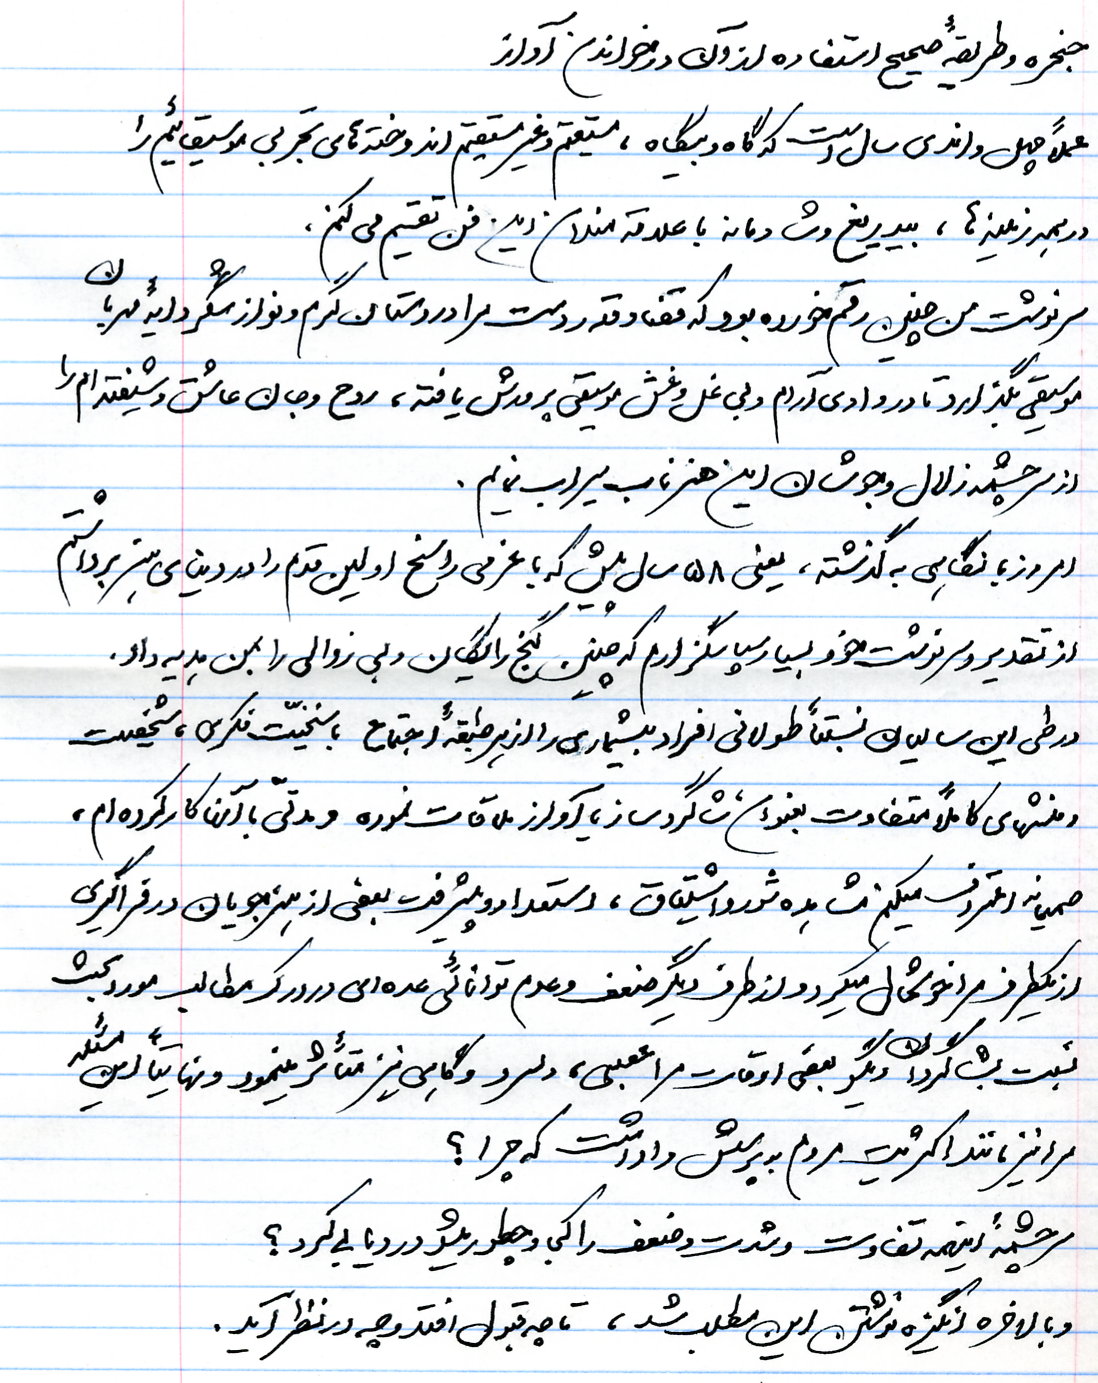 حنجره و طریقهٔ صحیح استفاده از آن در خواندن آواز
عملاً چهل و اندی سال است که گاه و بیگاه ، مستقیم و غیر مستقیم اندوخته های تجربی موسیقائیم را
در همه زمینه ها ، بیدریغ و شادمانه با علاقه مندان این فن تقسیم می کنم .
سرنوشت من چنین رقم خورده بود که قضا و قدر دست مرا در دستان گرم و نوازشگر دایهٔ مهربان
موسیقی بگذارد تا در وادی آرام و بی غل و غش موسیقی پرورش یافته ، روح و جان عاشق و شیفته ام را
از سرچشمه زلال و جوشان این هنر ناب سیراب نمایم .
امروز با نگاهی به گذشته ، یعنی ۵۸ سال پیش که با عزمی راسخ اولین قدم را در دنیای هنر برداشتم
از تقدیر و سرنوشت خود بسیار سپاسگزارم که چنین گنج رایگان و بی زوالی را بمن هدیه داد .
در طی این سالیان نسبتاً طولانی افراد بیشماری را از هر طبقهٔ اجتماع با سنخیّت فکری ، شخصیت
و منشهای کاملاً متفاوت بعنوان شاگرد ساز یا آواز ملاقات نموده و مدتی با آنها کار کرده ام ،
صمیمانه اعتراف میکنم مشاهده شور و اشتیاق ، استعداد و پیشرفت بعضی از هنرجویان در فراگیری
از یکطرف مرا خوشحال میکرد و از طرف دیگر ضعف و عدم توانائی عده ای در درک مطالب مورد بحث
نسبت بشاگردان دیگر بعضی اوقات مرا عصبی ، دلسرد و گاهی نیز متأثر مینمود و نهایتاً این مسئله
مرا نیز مانند اکثریت مردم به پرسش واداشت که چرا ؟
سرچشمهٔ اینهمه تفاوت و شدت و ضعف را کجا و چطور میشود ردیابی کرد ؟
و بالاخره انگیزه نوشتن این مطلب شد ، تا چه قبول افتد و چه در نظر آید .